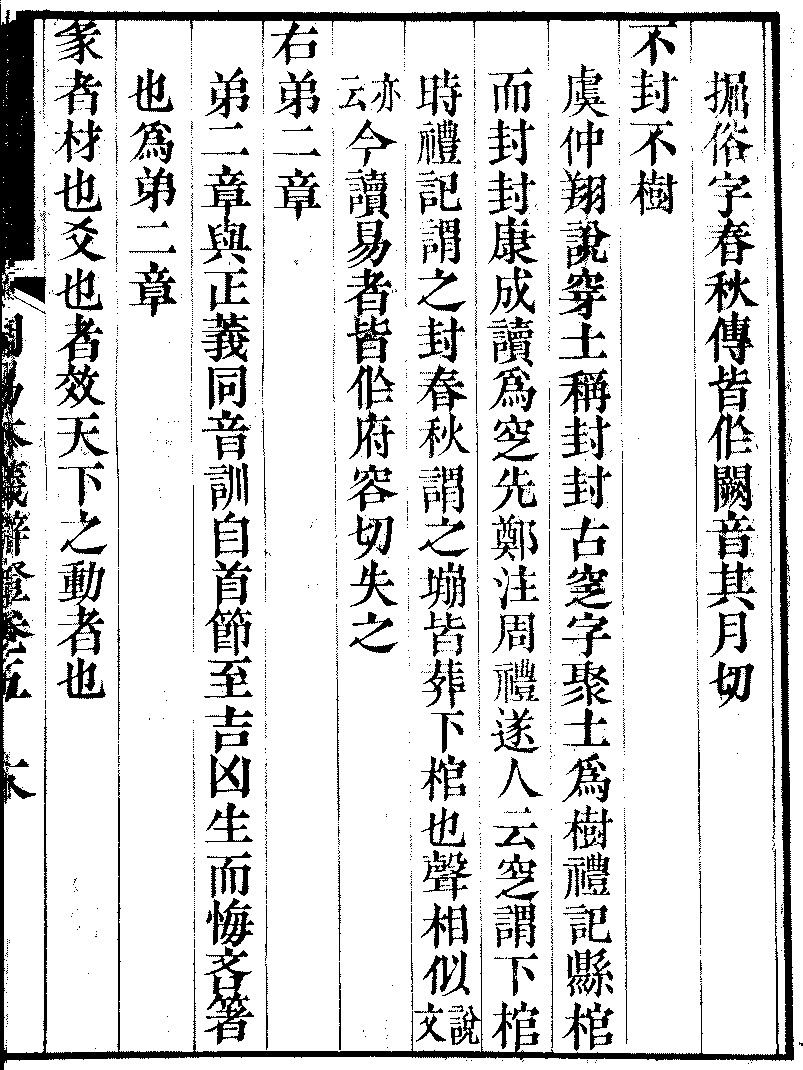 掘俗字春秋傳皆作闕音其月切
不封不樹
虞仲翔說穿土稱封封古窆字聚土爲樹禮記縣棺
而封封康成讀爲窆先鄭注周禮遂人云窆謂下棺
時禮記謂之封春秋謂之塴皆葬下棺也聲相似說文
亦云今讀易者皆作府容切失之
右弟二章
弟二章與正義同音訓自首節至吉凶生而悔吝箸
也爲弟二章
彖者材也爻也者效天下之動者也